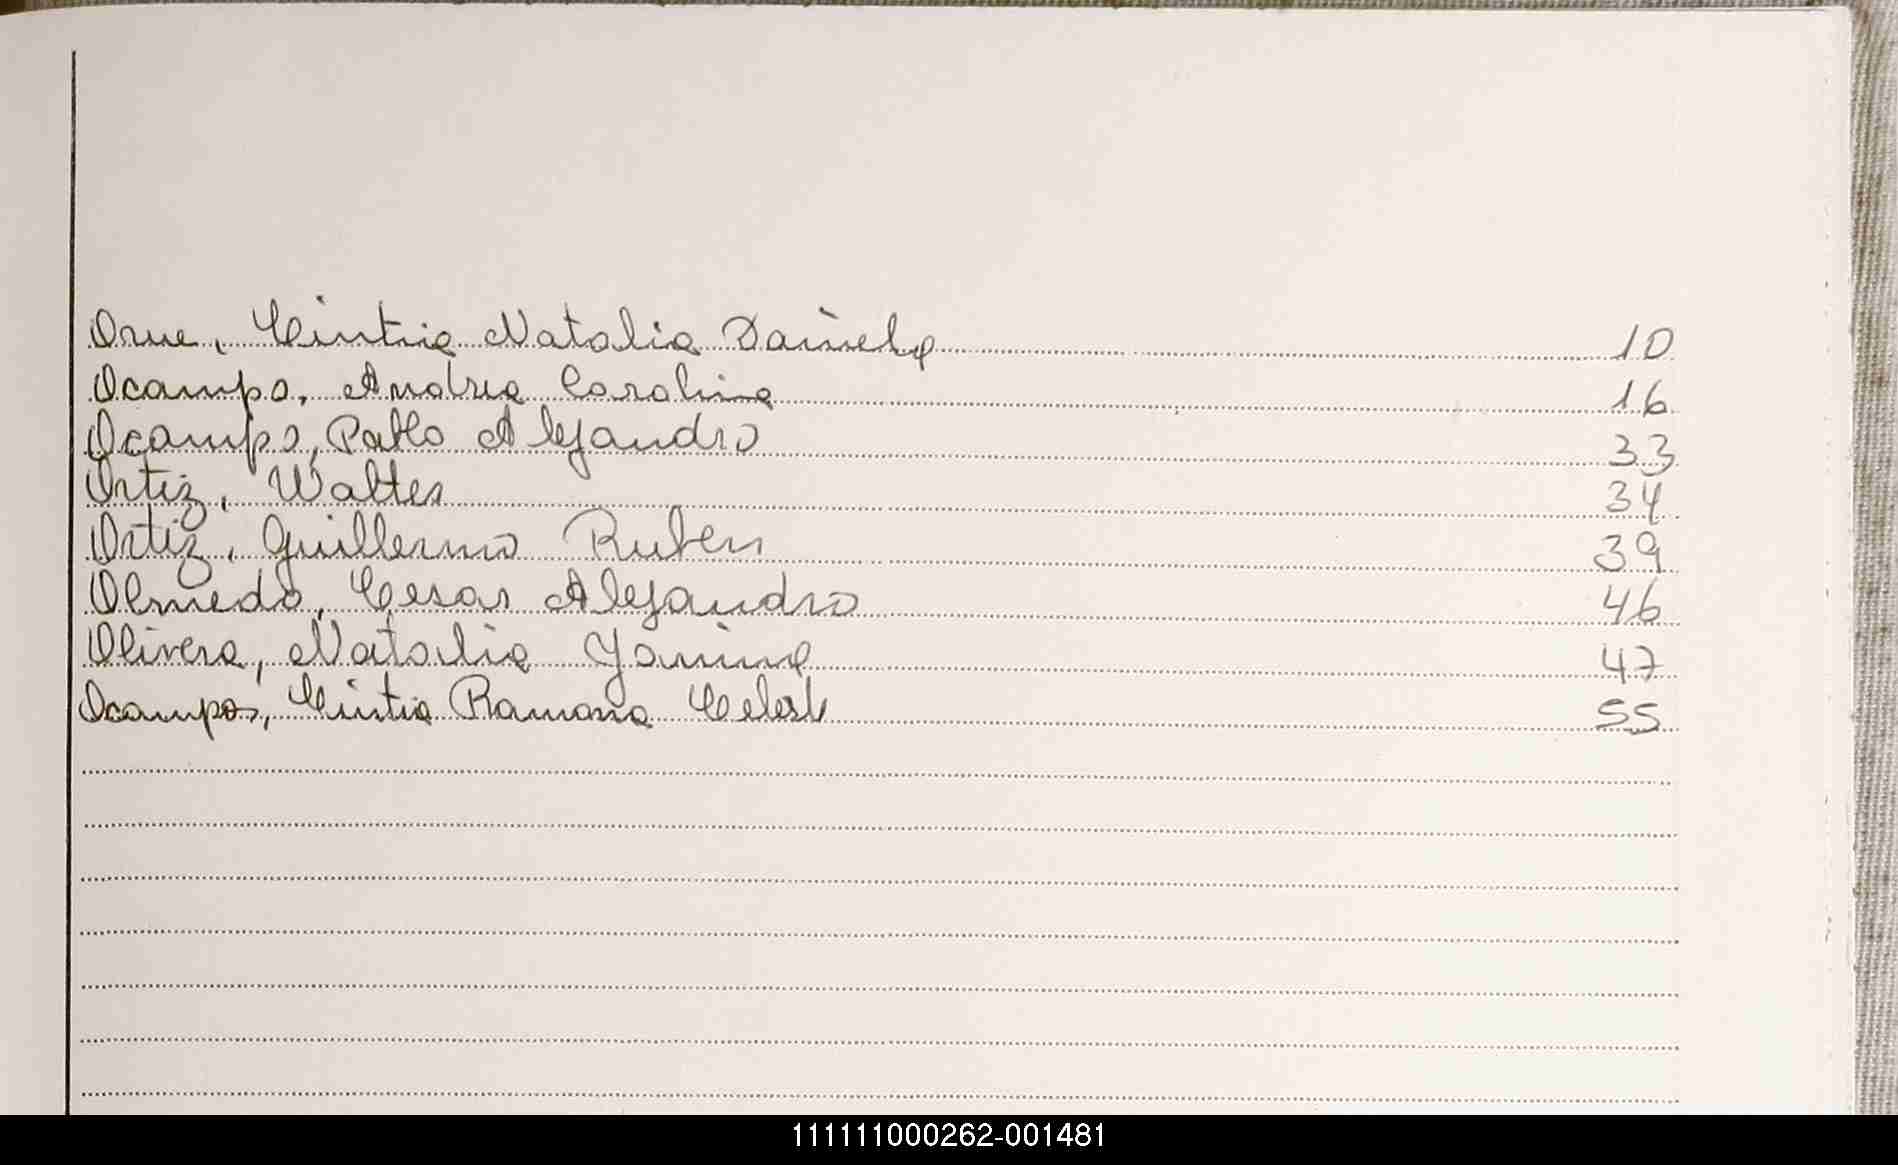 Orue, Cintia Natalia Daniela 10
Ocampo, Andrea Carolina 16
Ocampo, Pablo Alejandro 33
Ortiz, Walter 34
Ortiz, Guillermo Ruben 39
Olmedo, Cesar Alejandro 46
Olivera, Natalia Yanina 47
Ocampos, Cintia Ramona Celest 55
111111000262-001481